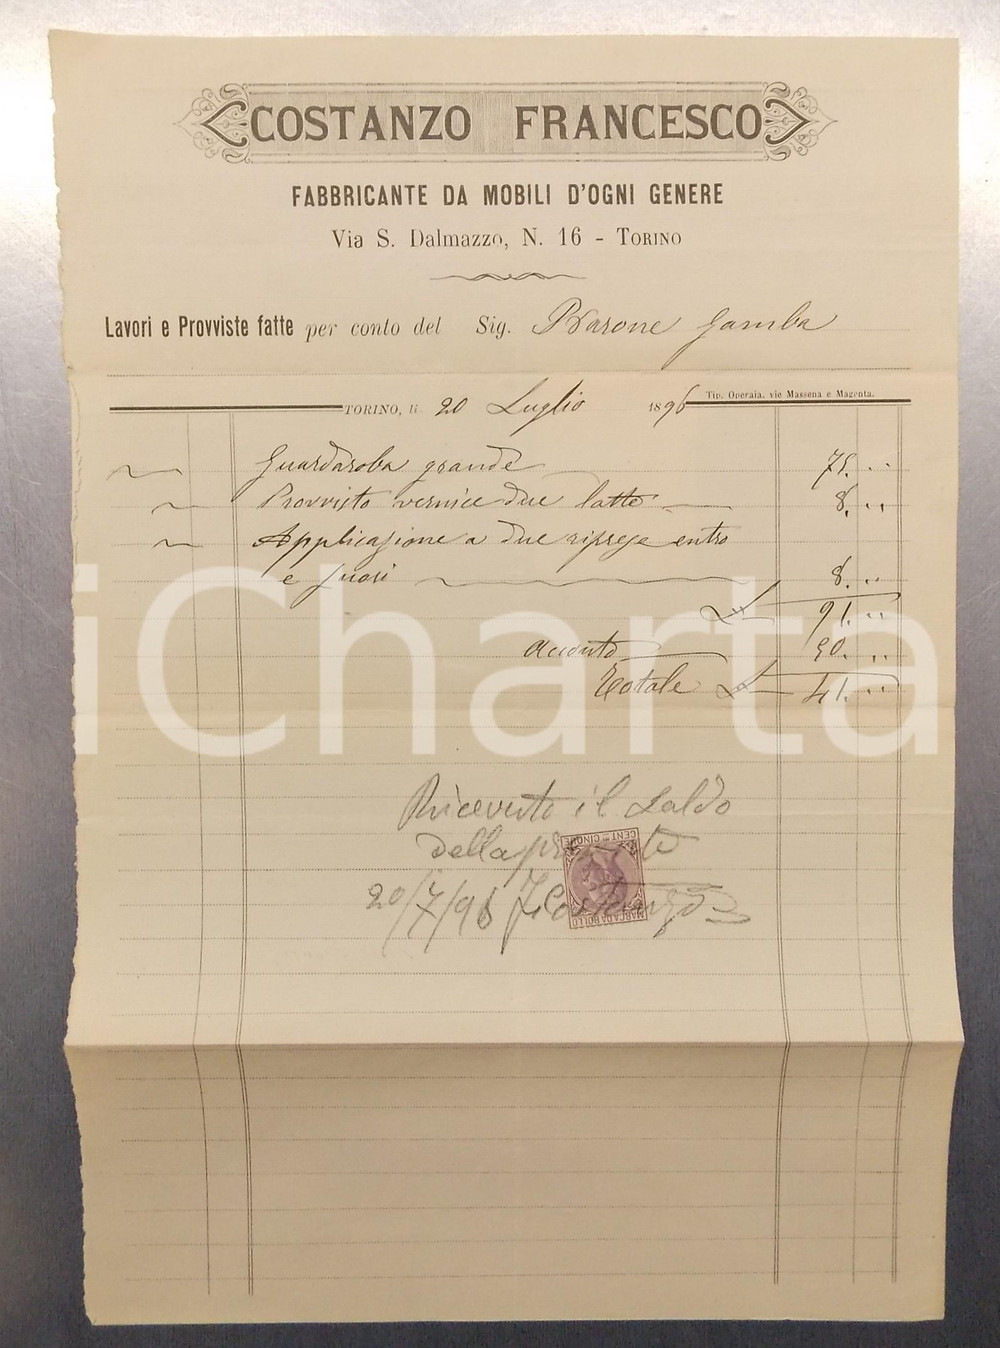 COSTANZO FRANCESCO
FABBRICANTE DA MOBILI D'OGNI GENERE
Via S. Dalmazzo, N. 16 - TORINO
Lavori e Provviste fatte per conto del Sig. Barone Gamba
TORINO, li 20 Luglio 1896
Tip. Operaia, vie Massena e Magenta.
Guardaroba grande 75. "
Provvisto vernice due latte 8. "
Applicazione a due riprese entro
e fuori 8. "
L 91. "
Acconto 50. "
Totale L 41. "
iCharta
Ricevuto il saldo
della
CENT. CINQUE
MARCA DA BOLLO
20/7/96